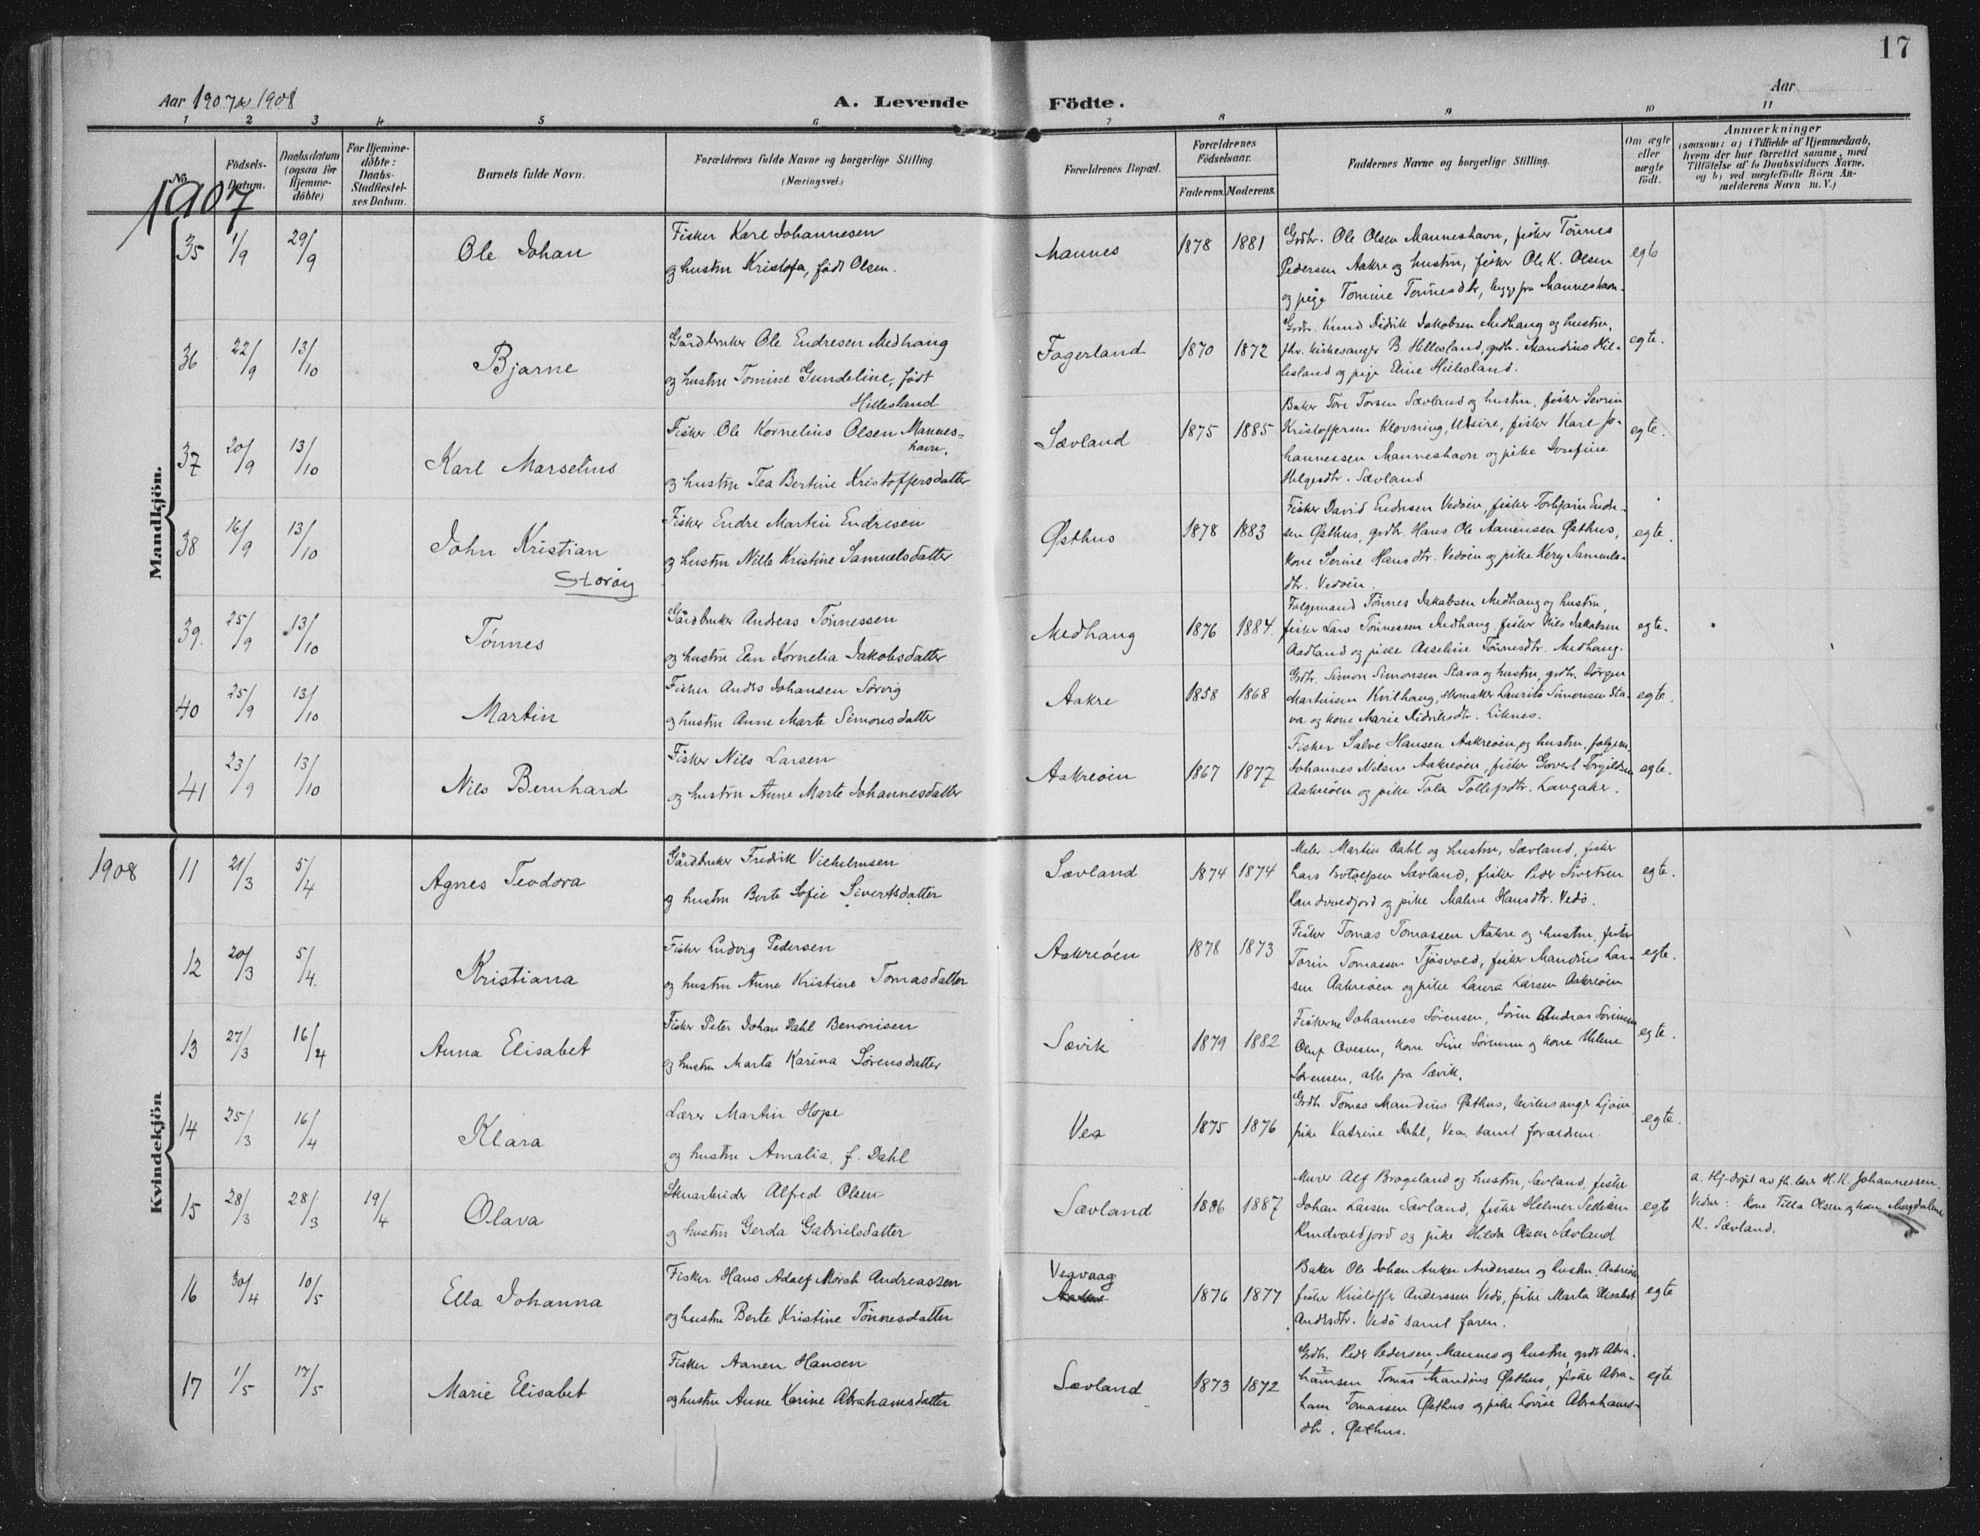 17
Aar 1907 & 1908
A. Levende Födte.
Aar
1 2 3 4 5 6 7 8 9 10 11
No.
Födsels-Datum.
Daabsdatum (ogsaa for Hjemmedöbte)
For Hjemmedöbte: Daabs-Stadfæstelses Datum.
Barnets fulde Navn.
Forældrenes fulde Navne og borgerlige Stilling (Næringsvei.)
Forældrenes Bopæl.
Forældrenes Födselsaar.
Faderens. Moderens.
Faddernes Navne og borgerlige Stilling.
Om ægte eller uægte födt.
Anmærkninger
(saasom: a) i Tilfælde af Hjemmedaab, hvem der har forrettet samme, med Tilföielse af to Daabsvidners Navne, og b) ved uægtefödte Börn Anmelderens Navn m. V.)
1907
Mandkjön.
35 1/9 29/9 Ole Johan
Fisker Karl Johannesen
og hustru Kristofa, født Olsen.
Mannes 1878 1881
Grdbr. Ole Olsen Manneshavn, fisker Tønnes
Pedersen Aakre og hustru, fisker Ole K. Olsen
og pige Tomine Tønnesdtr, begge fra Manneshavn.
egte
36 22/9 13/10 Bjarne
Gårdbruker Ole Endresen Medhaug
og hustru Tomine Gundeline, født
Hillesland
Fagerland 1870 1872
Grdbr. Knud Didrik Jakobsen Medhaug og hustru,
fhv. kirkesanger B. Hillesland, grdbr. Mandius Hil-
lesland og pige Eline Hillesland.
egte.
37 20/9 13/10 Karl Marselius
Fisker Ole Kornelius Olsen Mannes-
havn.
og hustru Tea Bertine Kristoffersdatter
Sævland 1875 1885
Baker Tore Torsen Sævland og hustru, fisker Sevrin
Kristoffersen Klovning, Utsire, fisker Karl Jo-
hannessen Manneshavn og pike Josefine
Helgesdtr. Sævland.
egte.
38 16/9 13/10 John Kristian
Storøy
Fisker Endre Martin Endresen
og hustru Nille Kristine Samuelsdatter
Østhus 1878 1883
Fisker David Endresen Vedøen, fisker Torbjørn Endre-
sen Østhus, grdbr. Hans Ole Aanensen Østhus,
kone Serine Hansdtr. Vedøen og pike Kery Samuels-
dtr. Vedøen.
egte.
39. 25/9 13/10 Tønnes
Gårdbruker Andreas Tønnessen
og hustru Elen Kornelia Jakobsdatter
Medhaug 1876 1884.
Folgemand Tønnes Jakobsen Medhaug og hustru,
fisker Lars Tønnessen Medhaug, fisker Nils Jakobsen
Aadland og pike Asseline Tønnesdtr. Medhaug.
egte.
40 25/9 13/10 Martin
Fisker Andrs Johansen Sørvig
og hustru Anne Marte Simonsdatter
Aakre 1858 1868
Grdbr. Simon Simonsen Stava og hustru, grdbr. Jørgen
Martinsen Kvilhaug, skomaker Laurits Simonsen Sta-
va og kone Marie Didriksdtr. Liknes.
egte.
41 23/9 13/10 Nils Bernhard
Fisker Nils Larsen
og hustru Anne Marte Johannesdatter
Aakreøen 1867 1877
Fisker Salve Hansen Aakreøen og hustru, folgem.
Johannes Nilsen Aakreøen, fisker Govert Torgildsen
Aakreøen og pike Tala Tollefsdtr. Langaker.
egte.
1908
Kvindekjön
11 21/3 5/4 Agnes Teodora
Gårdbruker Fredrik Vilhelmsen
og hustru Berte Sofie Sivertsdatter
Sævland 1874 1874
Maler Martin Dahl og hustru, Sævland, fisker
Lars Sævland, fisker Peder Sivertsen
Sandvoldfjord og pike Maline Hansdtr. Vedø.
egte.
12 20/3 5/4. Kristiana
Fisker Ludvig Pedersen
og hustru Anne Kristine Tomasdatter
Aakreøen 1878 1873
Fisker Tomas Tomassen Aakre og hustru, fisker
Torin Tomassen Tjøsvold, fisker Mandius Lar-
sen Aakreøen og pike Laura Larsen Aakreøen
egte.
13 27/3 16/4 Anna Elisabet
Fisker Peter Johan Dahl Benonisen
og hustru Marta Karina Sørensdatter
Sævik 1879 1882
Fiskerne Johannes Sørensen, Søren Andreas Sørensen
Oluf Ovesen, kone Sine Sørensen og kone Helene
Sørensen, alle fra Sævik.
egte.
14 25/3 16/4 Klara
Lærer Martin Hope
og hustru Amalia, f. Dahl
Vea 1875 1876
Grdbr. Tomas Mandius Østhus, kirkesanger Ljoen
pike Katrine Dahl, Vea, samt forældrene.
egte.
15 28/3 28/3 19/4 Olava
Stenarbeider Alfred Olsen
og hustru Gerda Gabrielsdatter
Sævland 1886 1887
Murer Alf Brageland og hustru, Sævland, fisker
Johan Larsen Sævland, fisker Helmer
Sandvoldfjord og pike Hilda Olsen Sævland
egte
a. Hj-døpt av fh. lærer H. K. Johannessen.
Vidner: Kone Tilla Olsen og kone Magdalene
K. Sævland.
16 30/4 10/5 Ella Johanna
Fisker Hans Adolf Morah Andreassen
og hustru Berte Kristine Tønnesdatter
Veavaag
Aakre
1876 1877
Baker Ole Johan Anker Andersen og hustru, Aakreøen
fisker Kristoffer Anderssen Vedø, pike Marta Elisabet
Andrsdtr. Vedø samt faren.
egte
17 1/5 17/5 Marie Elisabet
Fisker Aanen Hansen
og hustru Anne Karine Abrahamsdatter
Sævland 1873 1872
Grdbr. Peder Pedersen, Mannes og hustru, grdbr Abra-
hamsen Tomas Mandius Østhus, fisker Abra-
ham Tomassen Østhus og pike Lovise Abrahams-
dtr. Østhus.
egte